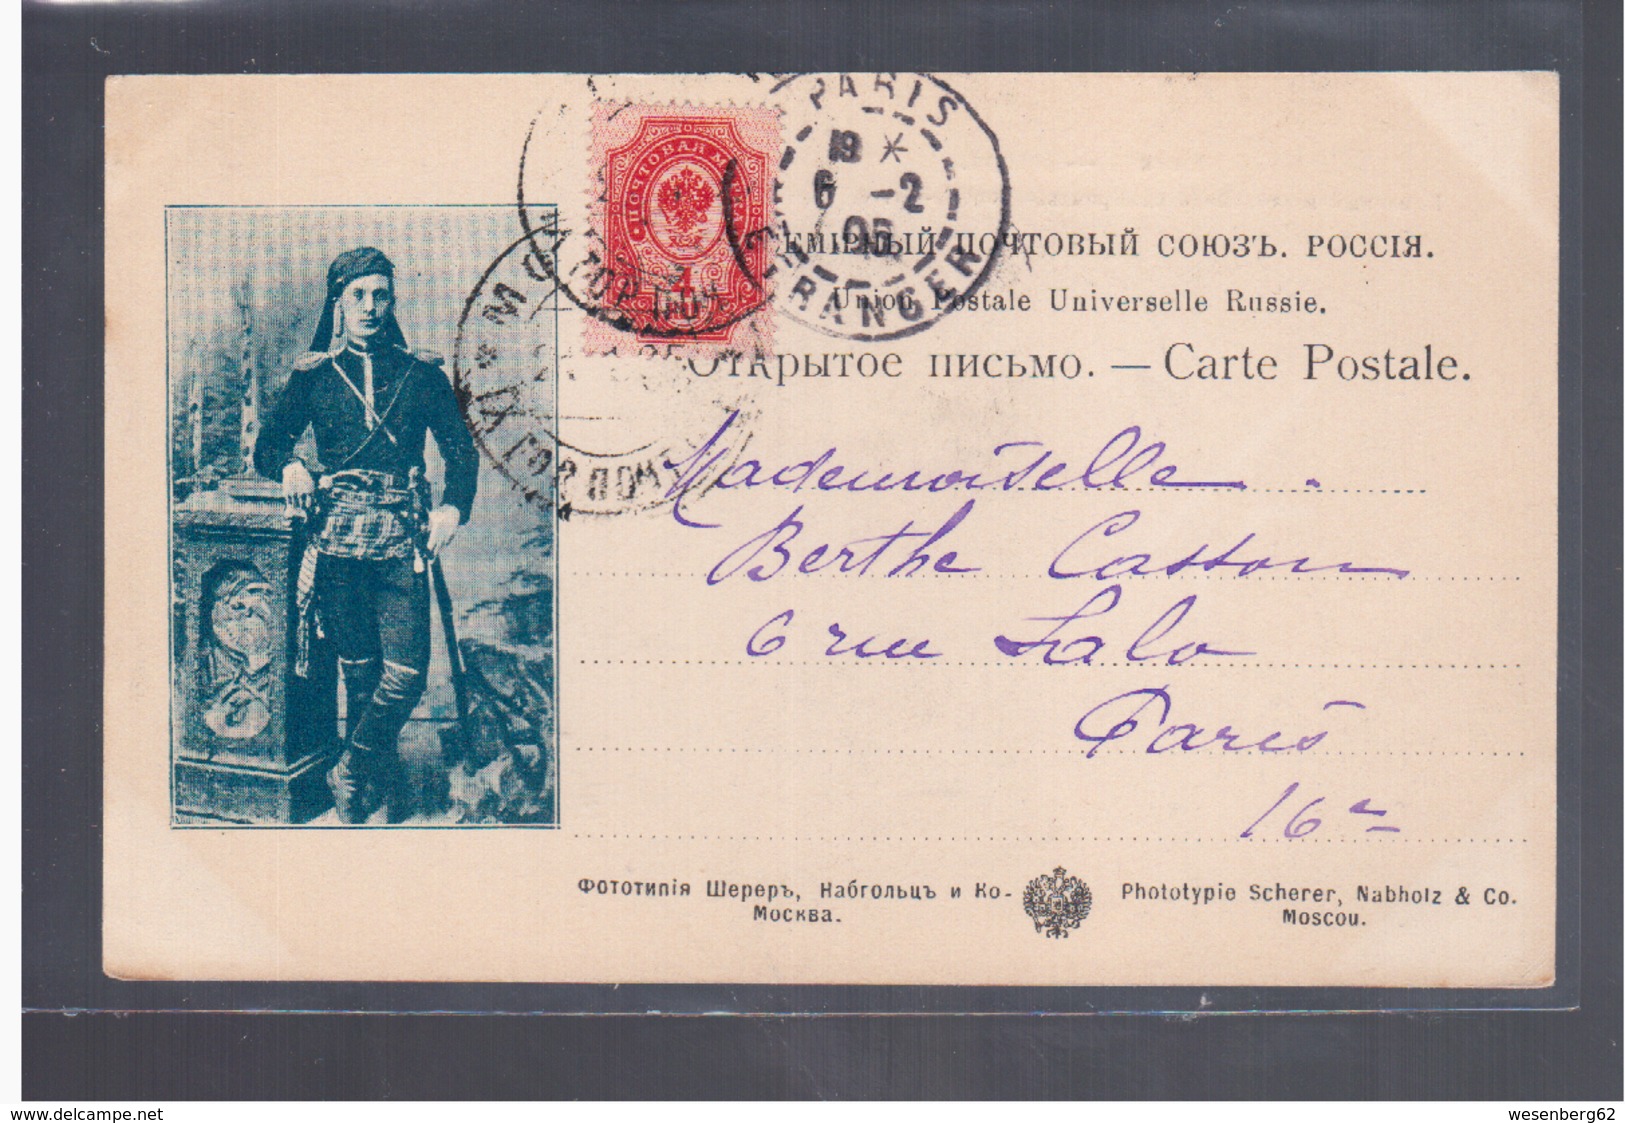 PARIS
19 *
6 -2
05
ETRANGER
ПОЧТОВАЯ МАРКА
4
МОСКВА
IX ГОР. ПОЧТ.
ГОР. ПОЧ
ВСЕМІРНЫЙ ПОЧТОВЫЙ СОЮЗЪ. РОССІЯ.
Union Postale Universelle Russie.
Открытое письмо. — Carte Postale.
Mademoiselle
Berthe Casson
6 rue Lalo
Paris
16e
Фототипія Шереръ, Набгольцъ и Ко-
Москва.
Phototypie Scherer, Nabholz & Co.
Moscou.
www.delcampe.net
wesenberg62